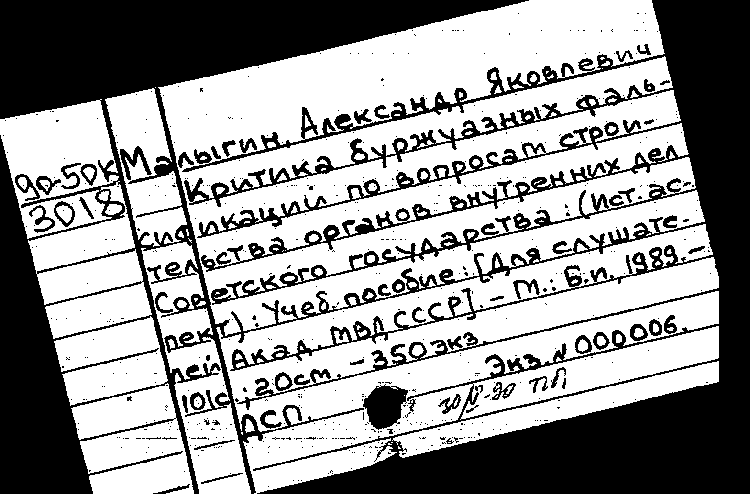 90-50К
3018
Малыгин, Александр Яковлевич
Критика буржуазных фаль-
сификаций по вопросам строи-
тельства органов внутренних дел
Советского государства : (Ист. ас-
пект) : Учеб. пособие : [Для слушате-
лей Акад. МВД СССР]. - М. : Б.и., 1989. -
101с. ; 20см. - 350 экз.
Экз. N 000006.
ДСП.